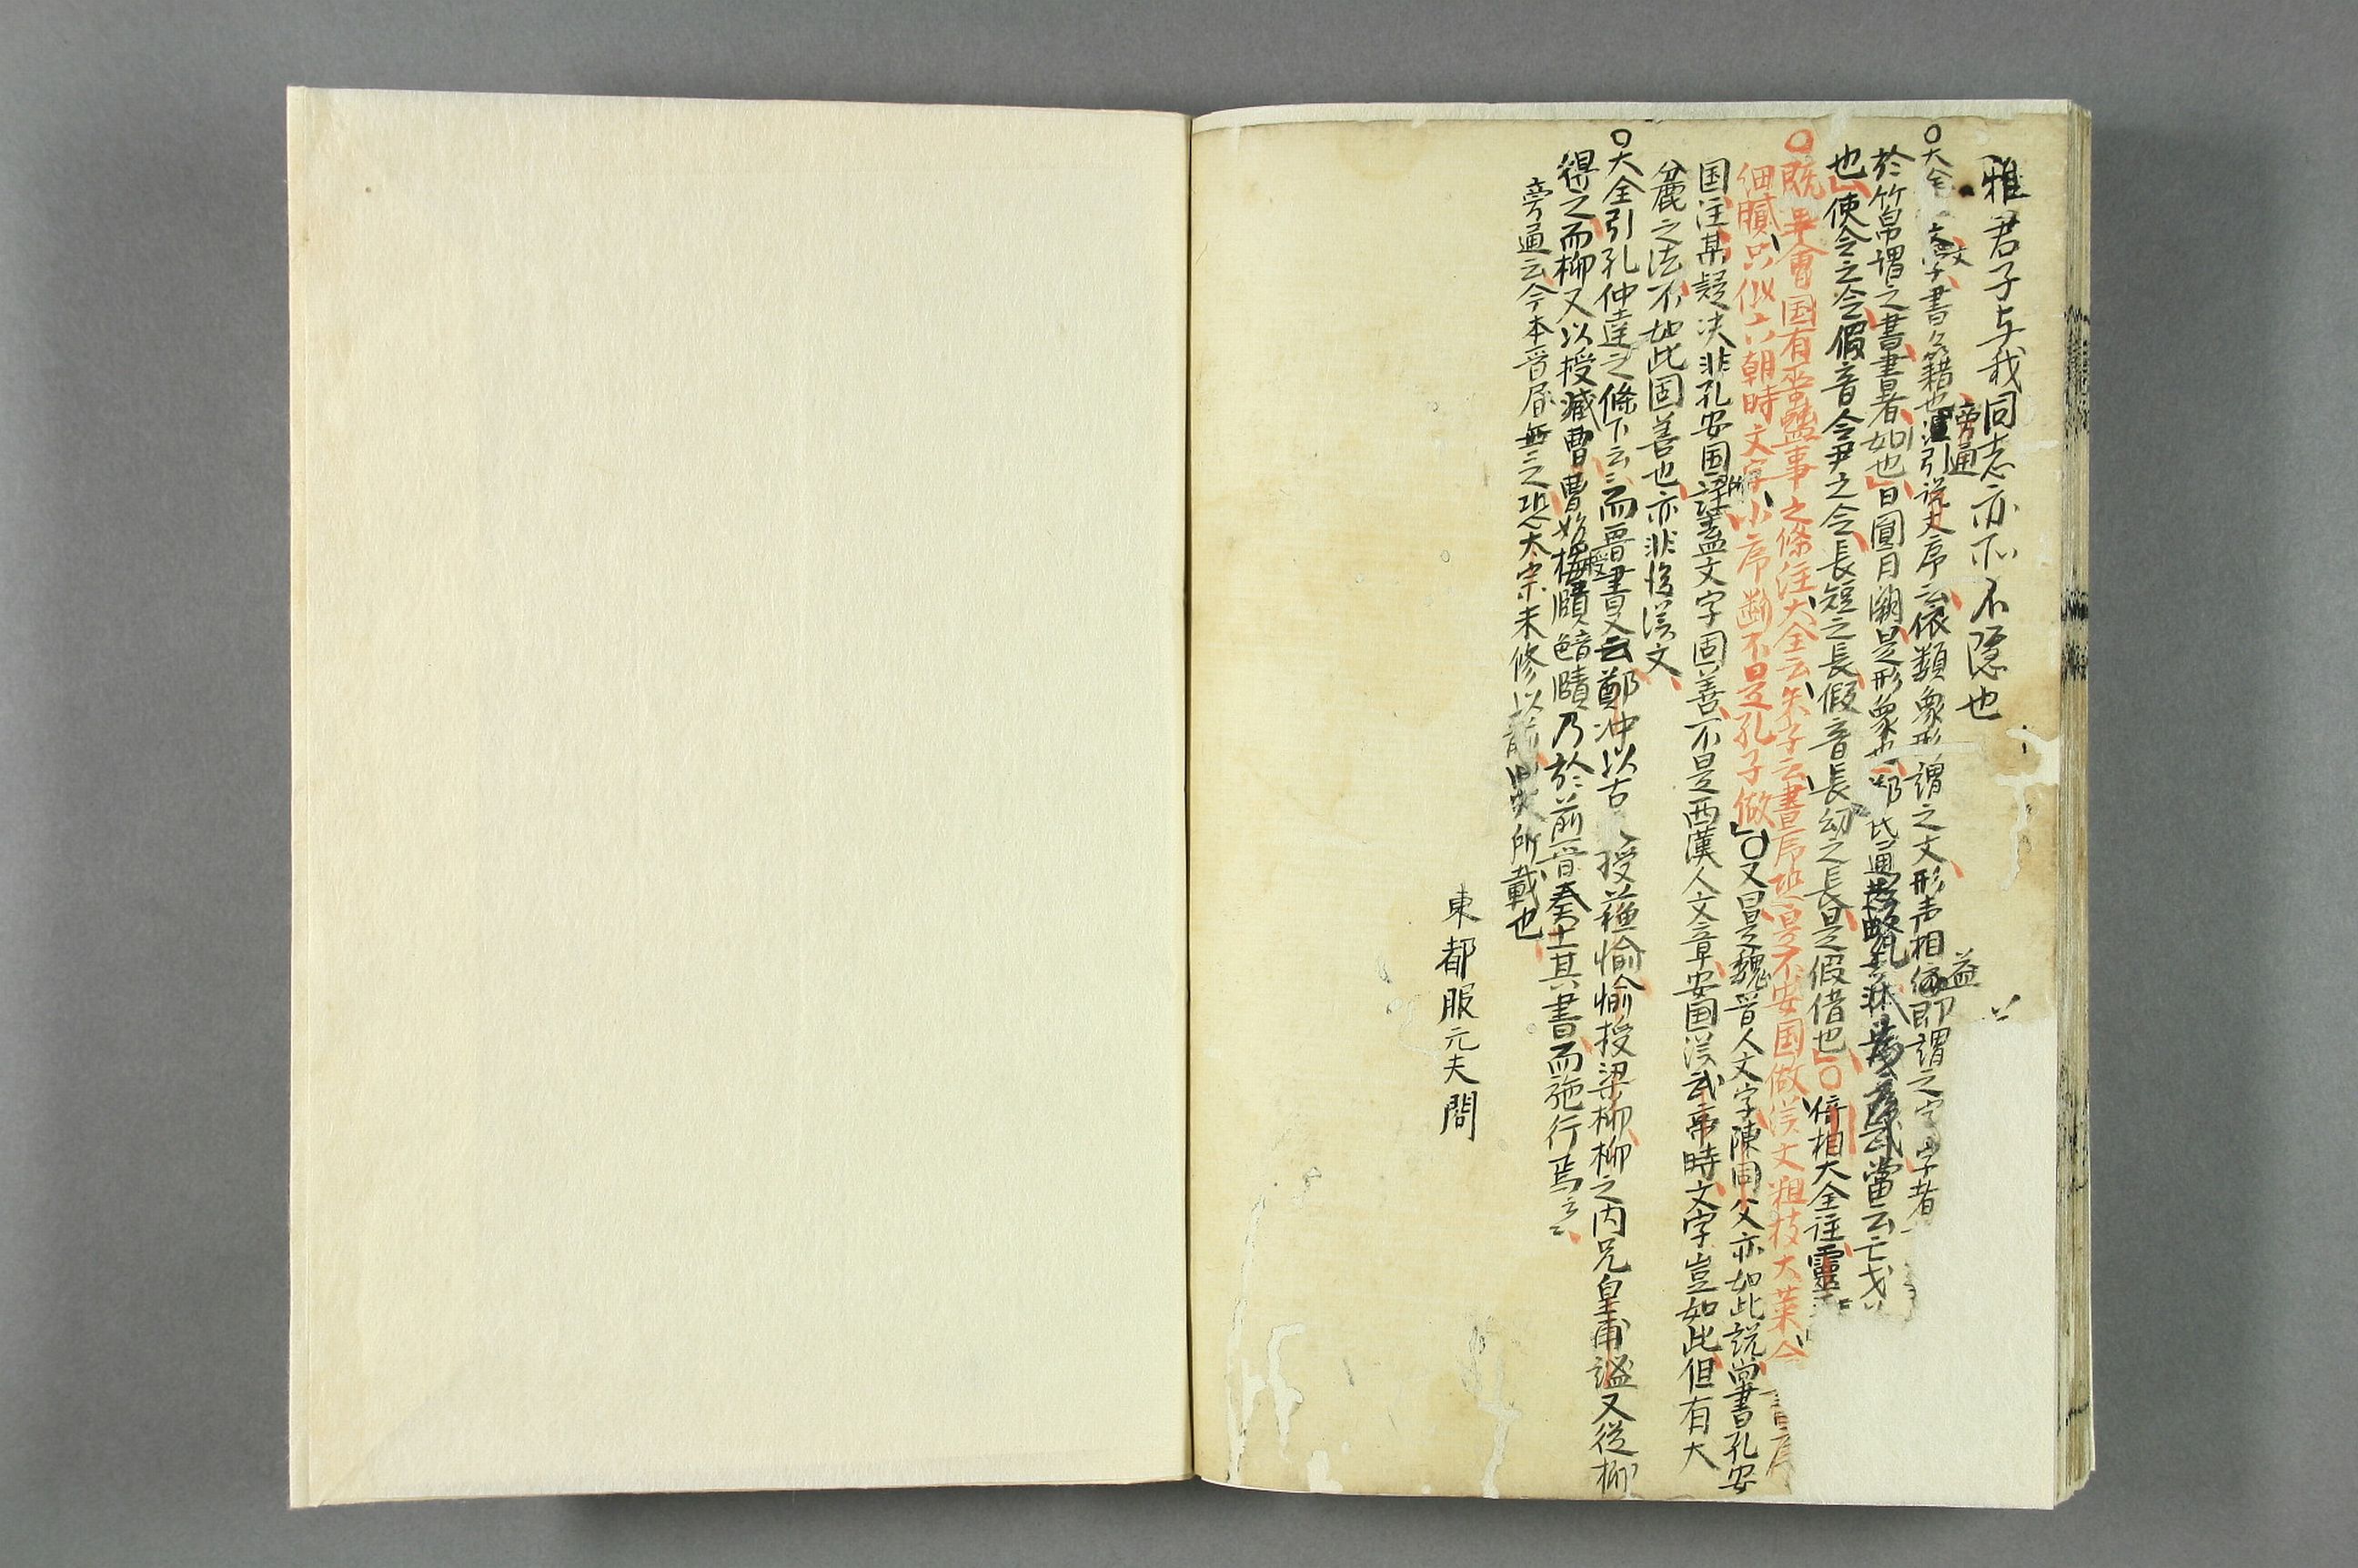 雅君子与我同志亦不隠也
〇大全 文字書名籍也 旁通引説文序云依類象形謂之文形声相益即謂之字字者
於竹帛謂之書書者如也日圓月闕是形象也鄭氏通 當云亡
也使令之令假音令尹之令長短之長假音長幼之長是假借也〇倚相大全註靈
〇既畢會国有巫蠱事之條注大全云朱子云書序恐是不安国做漢文粗枝大葉今書序
細膩只似六朝時文字小序断不是孔子做〇又曰是魏晋人文字陳同父亦如此説尚書孔安
国注某疑决非孔安国所註蓋文字固善不是西漢人文章安国漢武帝時文字豈如此但有大
麁之法不如此固善也亦非後漢文
〇大全引孔仲達之條下云云而晋書又云鄭冲以古 授蘇愉愉授梁柳柳之内兄皇甫謐又従柳
得之而柳又以授臧曹曹始授梅賾賾乃於前晋奏上其書而施行焉云云
旁通云今本晋書無之恐太宗未修以前旧史所載也
東都服元夫閻